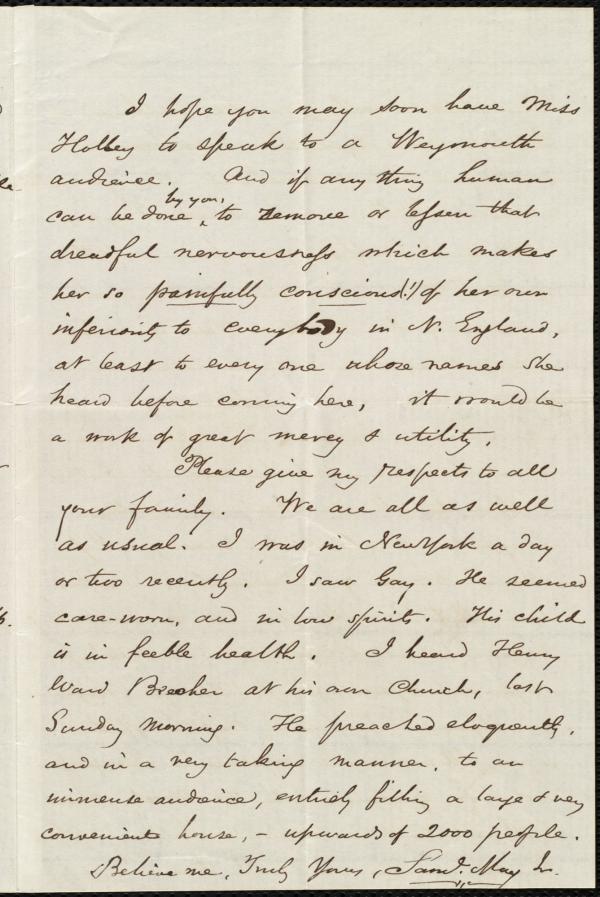 I hope you may soon have Miss
Holley to speak to a Weymouth
audience. And if any thing human
by you,
can be done ‸ to remove or lessen that
dreadful nervousness which makes
her so painfully conscious(!) of her own
inferiority to everybody in N. England,
at least to every one whose names she
heard before coming here, it would be
a work of great mercy & utility.
Please give my respects to all
your family. We are all as well
as usual. I was in New York a day
or two recently. I saw Gay. He seemed
care-worn, and in low spirits. His child
is in feeble health. I heard Henry
Ward Beecher at his own Church, last
Sunday morning. He preached eloquently,
and in a very taking manner, to an
immense audience, entirely filling a large & very
convenient house, – upwards of 2000 people.
Believe me, Truly Yours, Saml. May Jr.